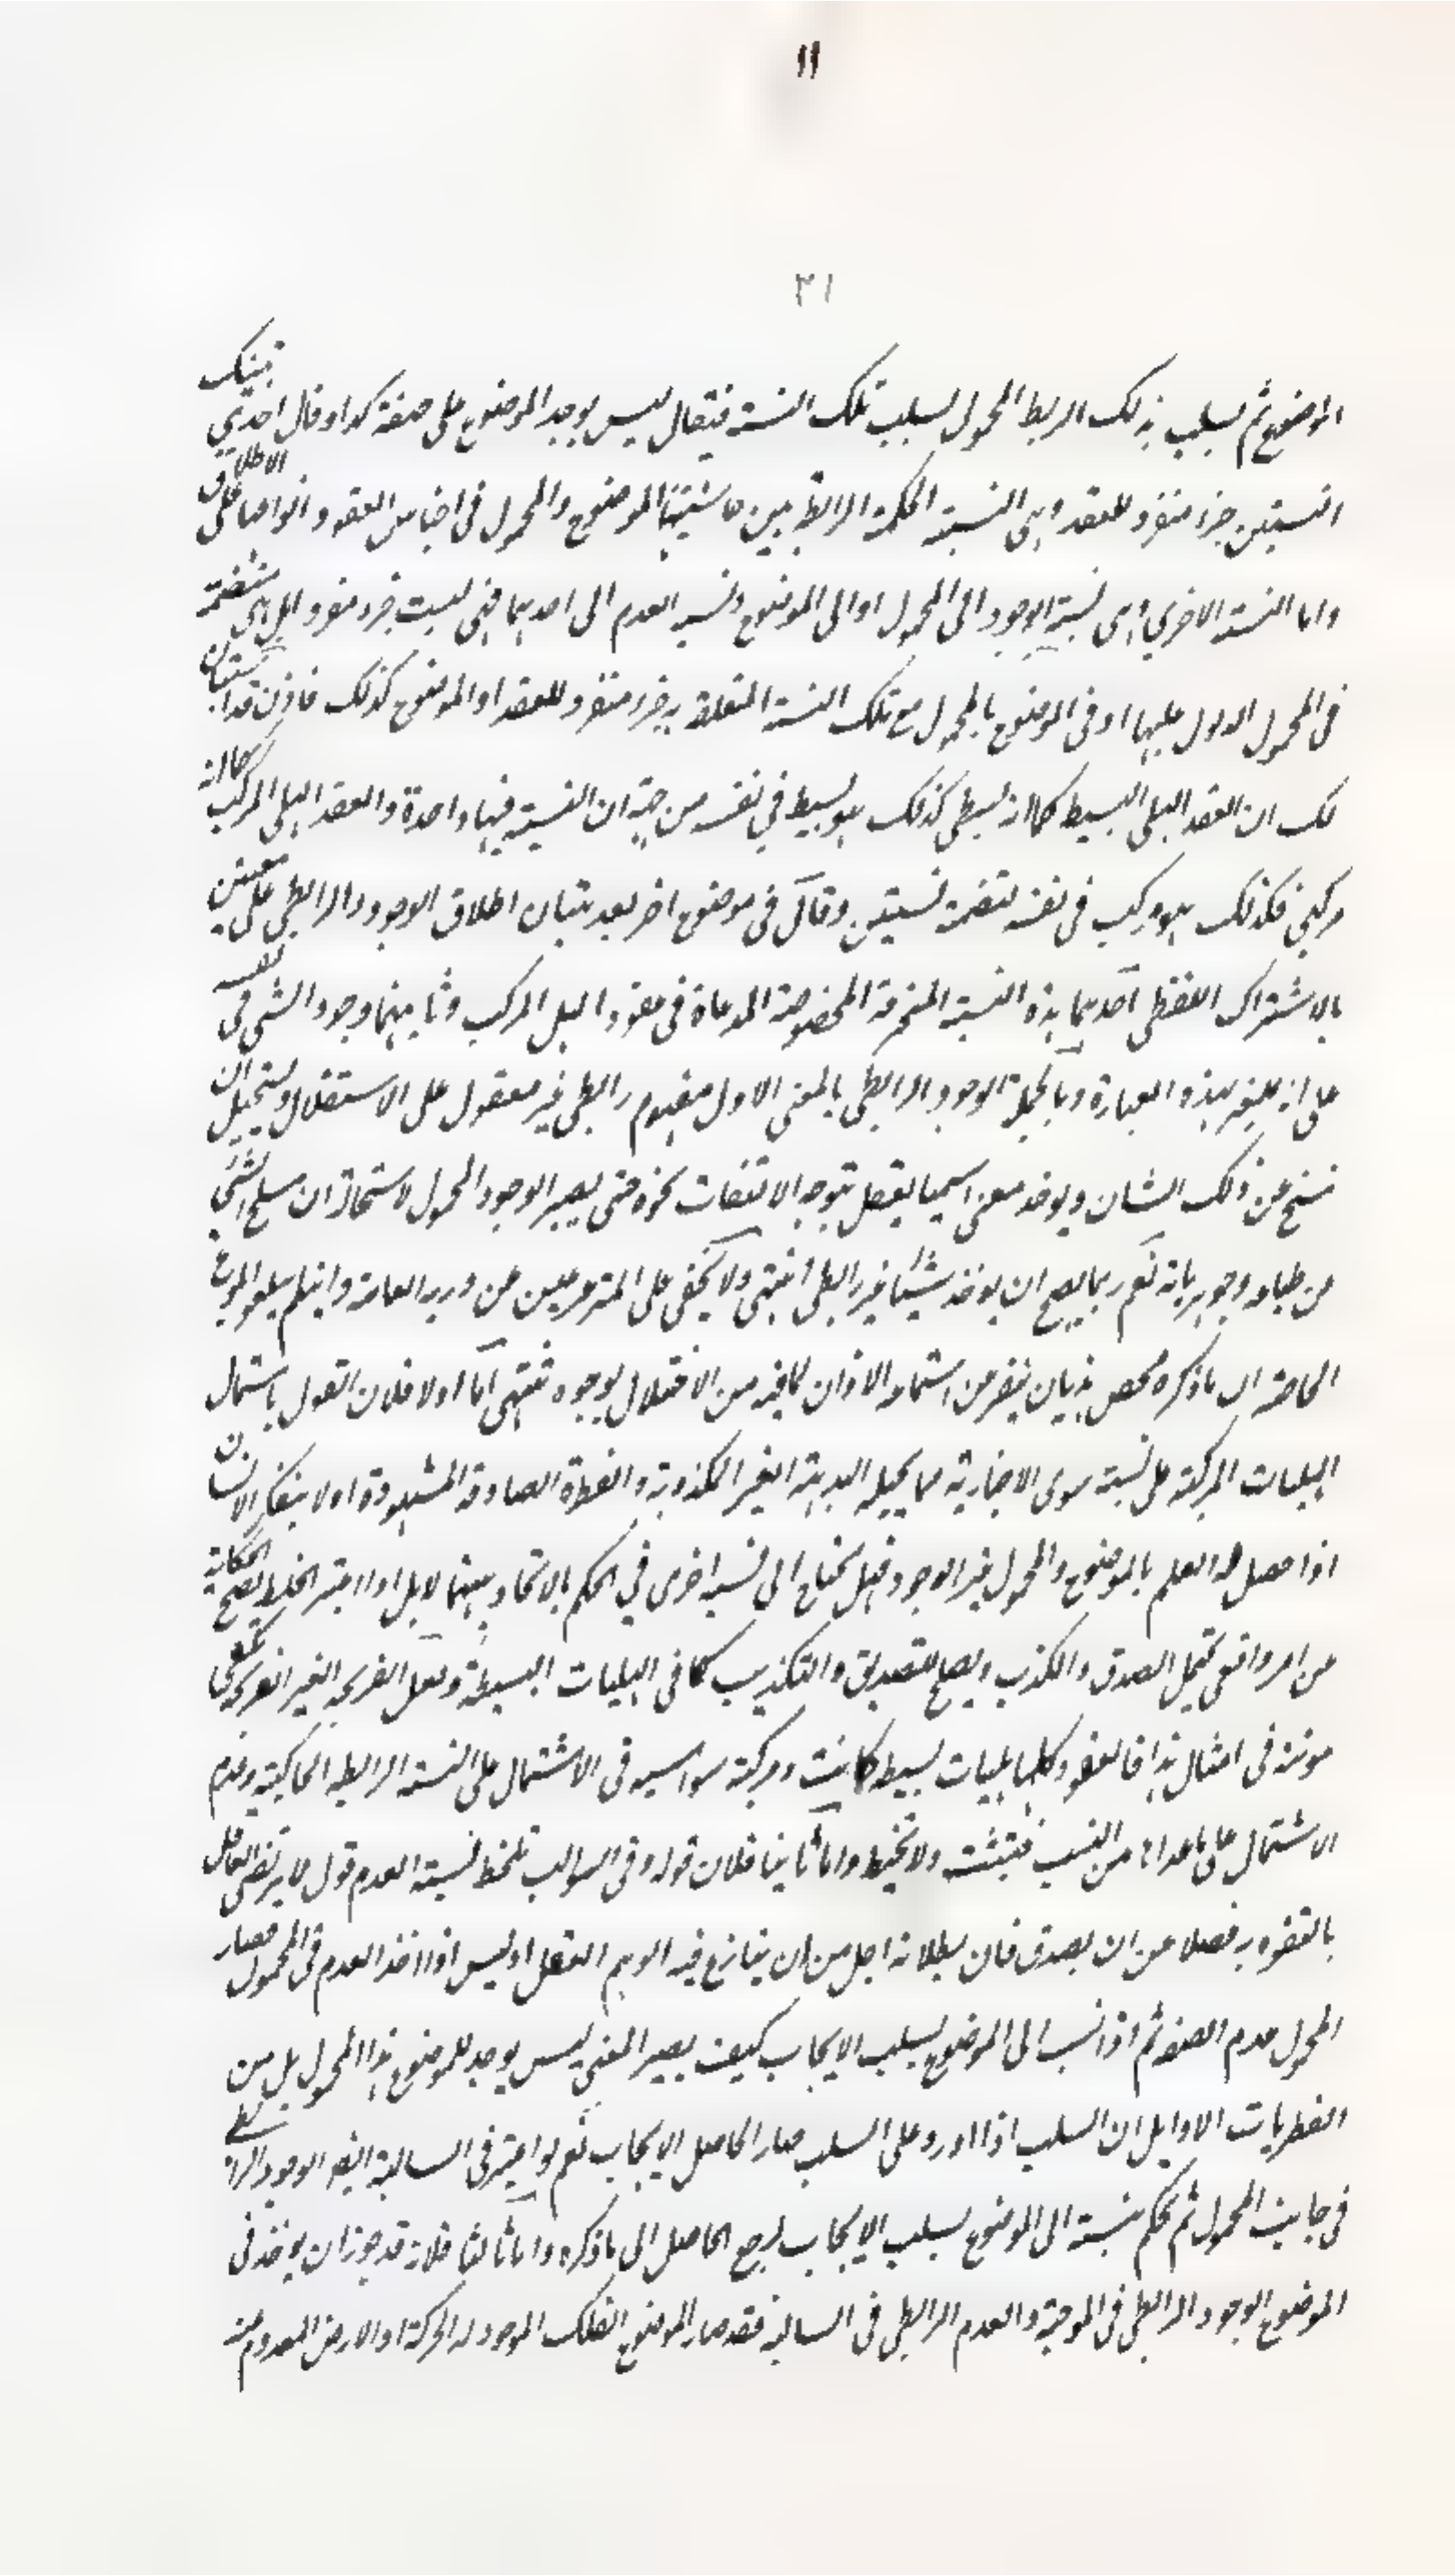 اا
٢١
الموضوع ثم يسلب ذلك الربط المحمول بسلب تلك النسبة فيقال ليس يوجد الموضوع على صفة كذا وقال احدى تينك
النسبتين جزء منفرد للعقد وهى النسبة الحكمية الرابطة بين حاشيتيها الموضوع والمحمول فى اجناس العقود وانواعها على الاطلاق
واما النسبة الاخرى وهى نسبة الوجود الى المحمول او الى الموضوع ونسبة العدم الى احدهما فهى ليست جزء منفردا بل هى متضمنة
فى المحمول المدلول عليها او فى الموضوع بالمحمول مع تلك النسبة المتعلقة به جزء منفرد للعقد او الموضوع كذلك فاذن قد استبان
لك ان العقد الهلى البسيط كما انه بسيطى كذلك هو بسيط فى نفسه من جهة ان النسبة فيها واحدة والعقد الهلى المركب كما انه
مركبى فكذلك هو مركب فى نفسه لتضمنه نسبتين وقال فى موضع اخر بعد بيان اطلاق الوجود الرابطى على معنيين
بالاشتراك اللفظى احدهما هذه النسبة المخصوصة المدعاة فى عقود الهل المركب وثانيهما وجود الشى فى نفسه
على انه لغيره بهذه العبارة وبالجملة الوجود الرابطى بالمعنى الاول مفهوم رابطى غير معقول على الاستقلال ويستحيل ان
ينسخ عن ذلك الشان ويوخذ معنى اسميا يتعقل بتوجه الالتفات نحوه حتى يصير الوجود المحمول لاستحالة ان ينسلخ الشى
عن طباعه وجوهرياته نعم ربما يصح ان يوخذ شيئا غير رابطى انتهى ولا يخفى على المترعرعين عن درجة العامة وان لم يبلغوا مبلغ
الخاصة ان ما ذكره محض هذيان ينفر من استماعه الاذان لما فيه من الاختلال بوجوه شتى اما اولا فلان القول باشتمال
الهليات المركبة على نسبة سوى الاخبارية مما يحيله البديهة الغير المكذوبة والفطرة الصادقة المشهودة اولا يتفكر الانسان
اذا حصل له العلم بالموضوع والمحمول غير الوجود فهل يحتاج الى نسبة اخرى فى الحكم بالاتحاد بينهما لا بل اذا اعتبر الخلط يصح الحكاية
عن امر واقعى يحتمل الصدق والكذب ويصلح للتصديق والتكذيب كما فى الهليات البسيطة ولعل القريحة الغير القريحة يكفى
مونة فى امثال هذا فالعقود كلها هليات بسيطة كانت او مركبة سواسية فى الاشتمال على النسبة الرابطة الحاكية وعدم
الاشتمال على ماعداها من النسب فتثبت ولا تخبط واما ثانيا فلان قوله وفى السوالب تلحظ نسبة العدم قول لا يرتضى العاقل
بالتفوه به فضلا عن ان يصدق فان بطلانه اجل من ان ينازع فيه الوهم العقل اوليس اذا اخذ العدم فى المحمول فصار
المحمول عدم الصفة ثم اذا نسب الى الموضوع بسلب الايجاب كيف يصير المعنى ليس يوجد للموضوع هذا المحمول بل من
الفطريات الاوايل ان السلب اذا اورد على السلب صار الحاصل الايجاب نعم لو اعتبر فى السالبة ايضا الوجود الرابطى
فى جانب المحمول ثم يحكم بنسبته الى الموضوع بسلب الايجاب لرجع الحاصل الى ما ذكره واما ثالثا فلانه قد جوز ان يوخذ فى
الموضوع الوجود الرابطى فى الموجبة والعدم الرابطى فى السالبة فقد صار الموضوع الفلك الموجود له الحركة او الارض المعدوم عنه